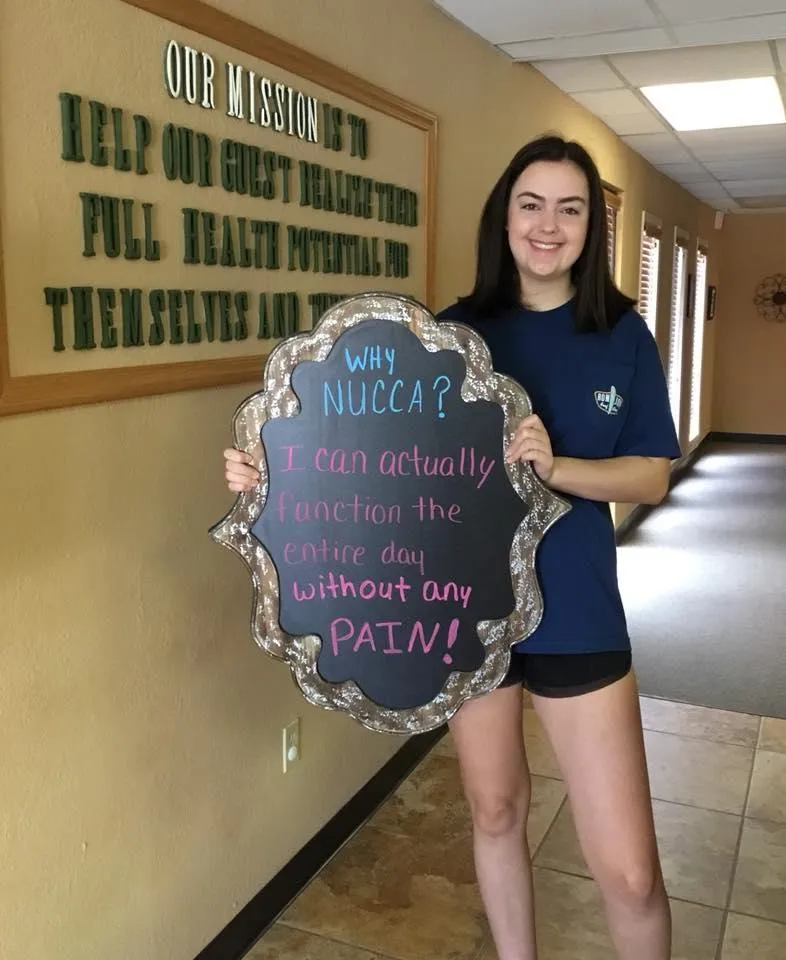 OUR MISSION IS TO
HELP OUR GUEST REALIZE THEIR
FULL HEALTH POTENTIAL FOR
THEMSELVES AND
WHY
NUCCA?
I can actually
function the
entire day
without any
PAIN!
RON